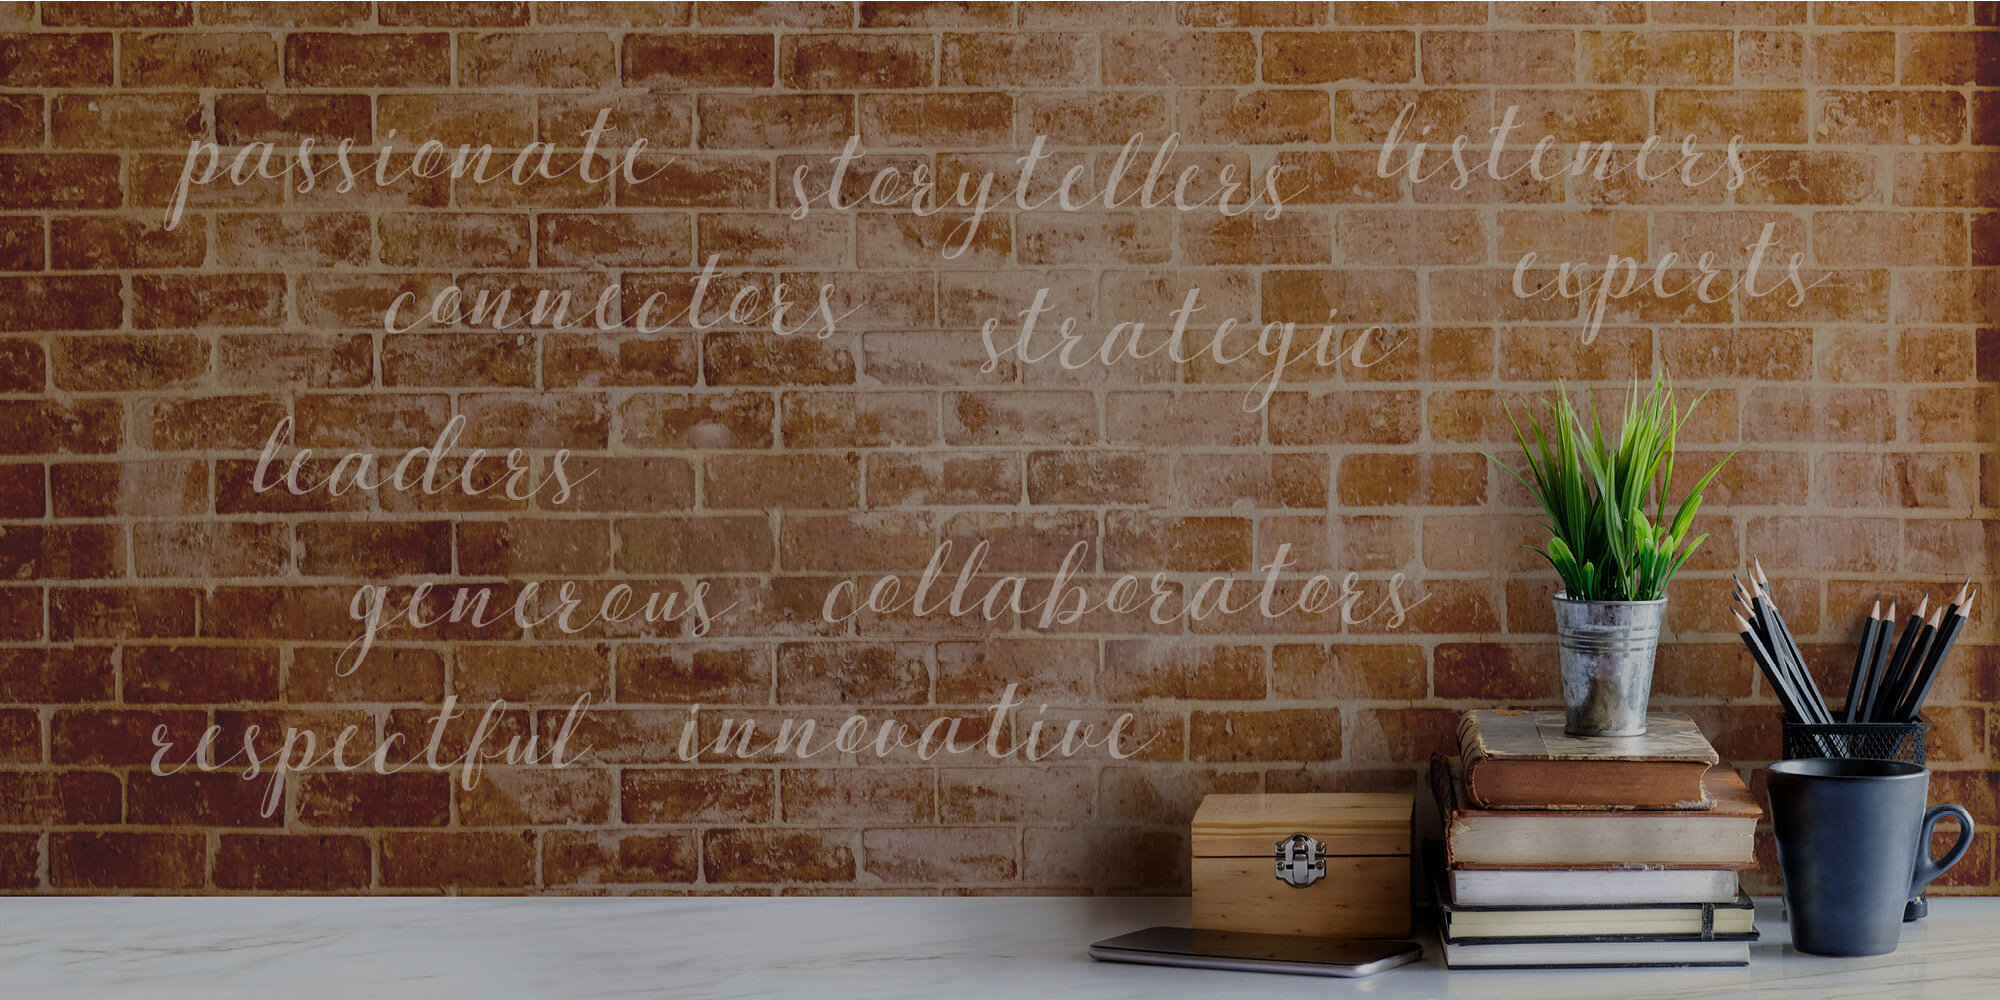 passionate
storytellers
listeners
connectors
strategic
experts
leaders
generous
collaborators
respectful
innovative